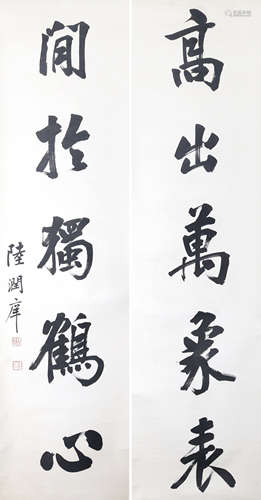 高出萬象表
閒於獨鶴心
陸潤庠